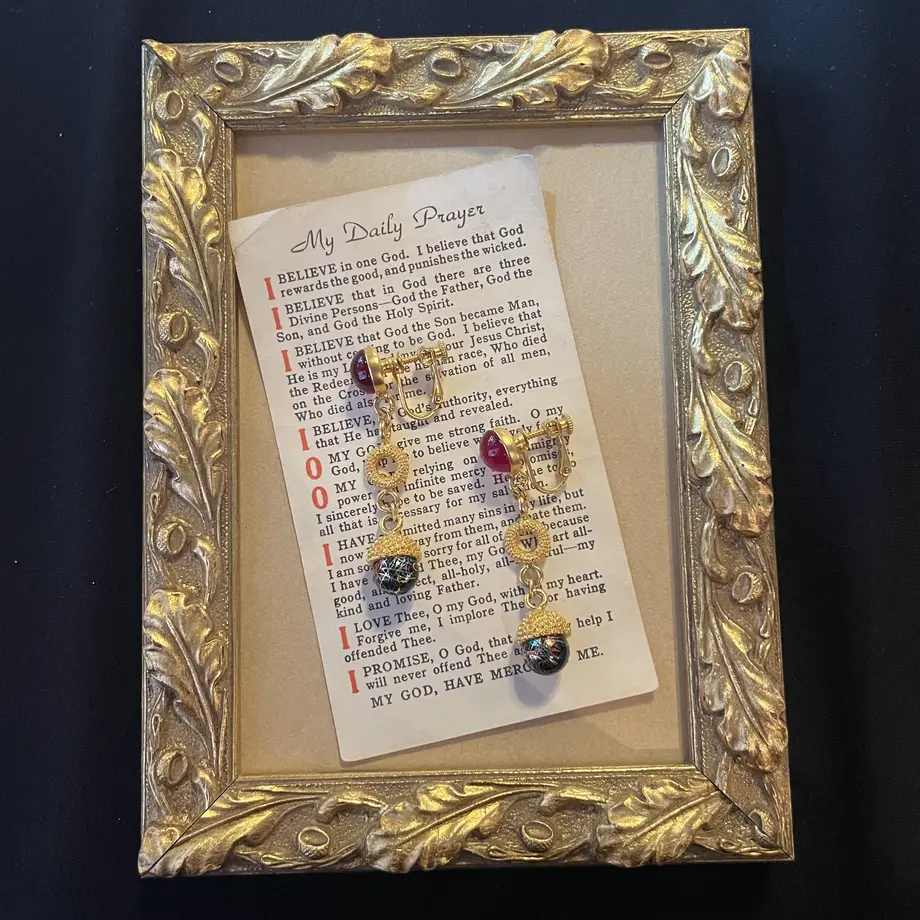 My Daily Prayer
I BELIEVE in one God. I believe that God
rewards the good, and punishes the wicked.
I BELIEVE that in God there are three
Divine Persons—God the Father, God the
Son, and God the Holy Spirit.
I BELIEVE that God the Son became Man,
without to be God. I believe that
He is my our Jesus Christ,
the race, Who died
on the the of all men,
Who died me.
I BELIEVE, God's authority, everything
that He taught and revealed.
O MY give me strong faith. O my
God, to believe
O MY relying on
power infinite mercy
I sincerely to be saved. He
all that is for my
I HAVE many sins in my life, but
now from them, and hate them.
I am sorry for all of because
I have Thee, my art all-
good, all-holy,
kind and loving Father.
I LOVE Thee, O my God, with my heart.
Forgive me, I implore for having
offended Thee.
I PROMISE, O God, that help I
will never offend Thee
MY GOD, HAVE ME.